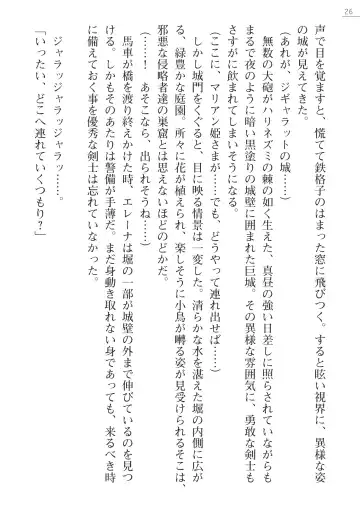 26
声で目を覚ますと、慌てて鉄格子のはまった窓に飛びつく。すると眩い視界に、異様な姿
の城が見えてきた。
（あれが、ジギャラットの城……）
無数の大砲がハリネズミの棘の如く生えた、真昼の強い日差しに照らされていながらも
まるで夜のように暗い黒塗りの城壁に囲まれた巨城。その異様な雰囲気に、勇敢な剣士も
さすがに飲まれてしまいそうになる。
（ここに、マリアン姫さまが……でも、どうやって連れ出せば……）
しかし城門をくぐると、目に映る情景は一変した。清らかな水を湛えた堀の内側に広が
る、緑豊かな庭園。所々に花が植えられ、楽しそうに小鳥が囀る姿が見受けられるそこは、
邪悪な侵略者達の巣窟とは思えないほどのどかだ。
（……！　あそこなら、出られそうね……）
馬車が橋を渡り終えかけた時、エレーナは堀の一部が城壁の外まで伸びているのを見つ
ける。しかもあのあたりは警備が手薄だ。まだ身動き取れない身であっても、来るべき時
に備えておく事を優秀な剣士は忘れていなかった。
ジャラッジャラッジャラッ……。
「いったい、どこへ連れていくつもり？」